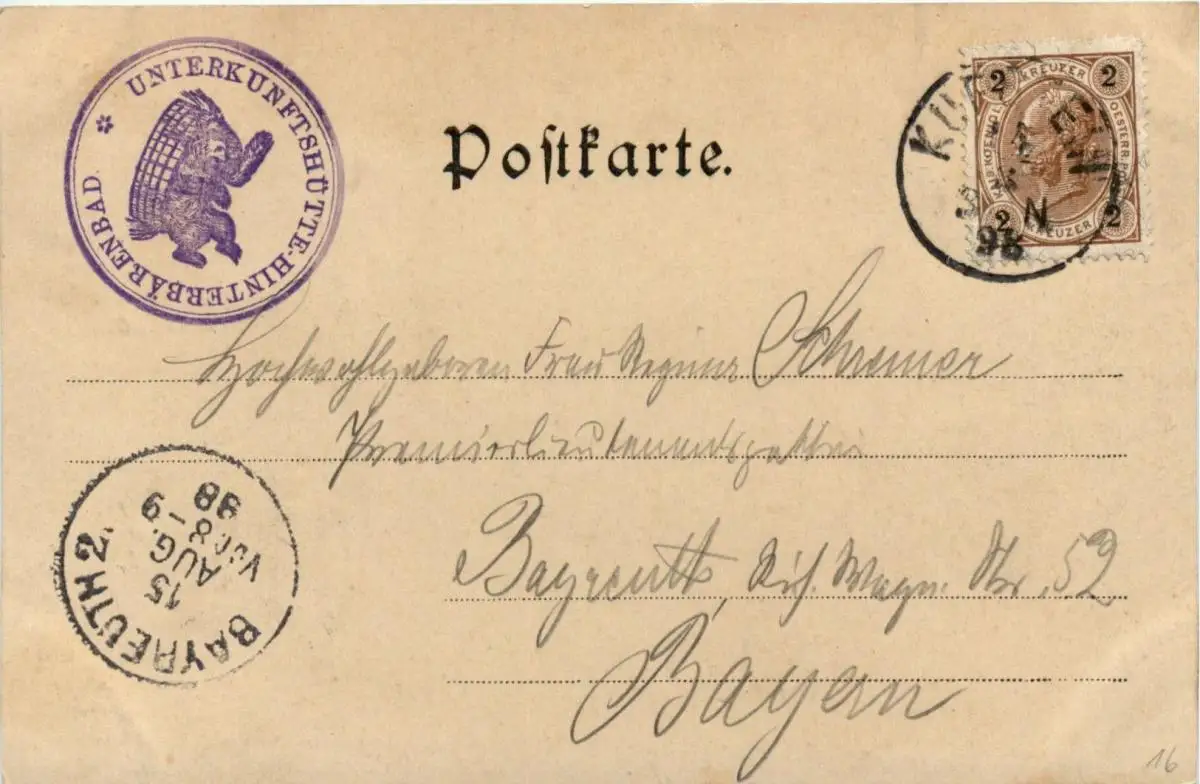 UNTERKUNFTSHÜTTE-HINTERBÄRENBAD.
Postkarte.
2 KREUZER 2
KUF
OESTERR. POST
2 KREUZER 2
N
98
Hochwohlgeboren Frau Regina Schremer
Premierlieutenantsgattin
Bayreuth, Rich. Wagn. Str. 52
Bayern
BAYREUTH 2.
15
AUG.
VOR. 8-9
98
16